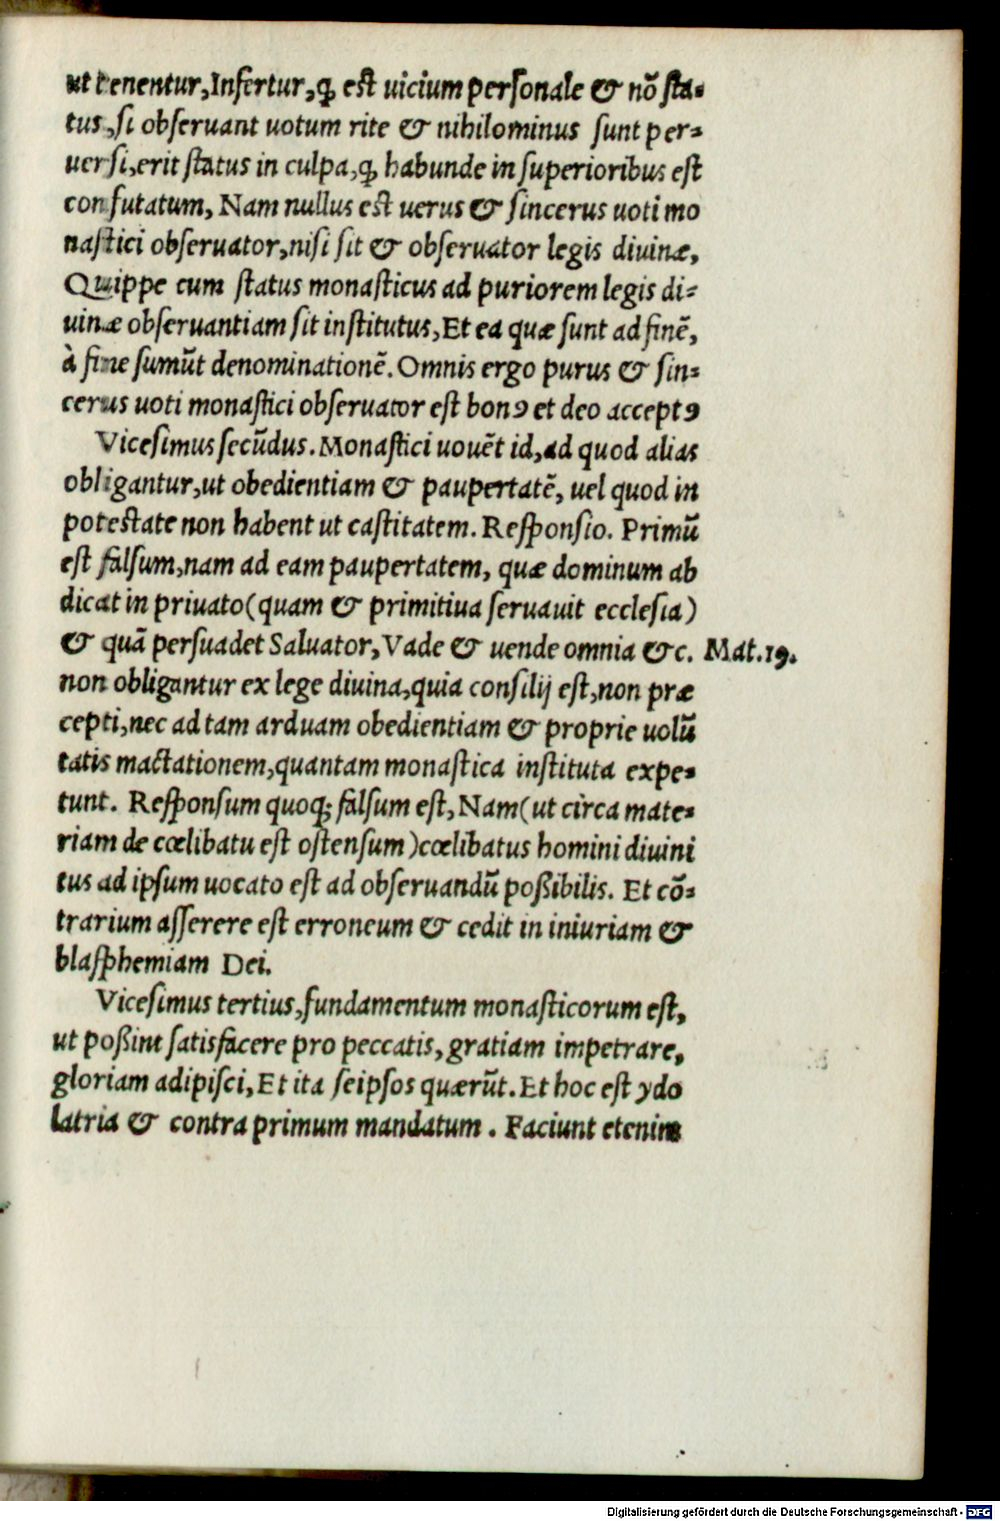 ut tenentur,Infertur,ꝙ est uicium personale & nō sta-
tus,si obseruant uotum rite & nihilominus sunt per-
uersi,erit status in culpa,ꝙ habunde in superioribus est
confutatum, Nam nullus est uerus & sincerus uoti mo
nastici obseruator,nisi sit & obseruator legis diuinæ,
Quippe cum status monasticus ad puriorem legis di-
uinæ obseruantiam sit institutus,Et ea quæ sunt ad finē,
à fine sumūt denominationē. Omnis ergo purus & sin-
cerus uoti monastici obseruator est bonꝰ et deo acceptꝰ
Vicesimus secūdus. Monastici uouēt id,ad quod alias
obligantur,ut obedientiam & paupertatē, uel quod in
potestate non habent ut castitatem. Responsio. Primū
est falsum,nam ad eam paupertatem, quæ dominum ab
dicat in priuato(quam & primitiua seruauit ecclesia)
& quā persuadet Saluator,Vade & uende omnia &c. Mat.19.
non obligantur ex lege diuina,quia consilij est,non præ
cepti,nec ad tam arduam obedientiam & proprie uolū
tatis mactationem,quantam monastica instituta expe-
tunt. Responsum quoq; falsum est, Nam(ut circa mate-
riam de cœlibatu est ostensum)cœlibatus homini diuini
tus ad ipsum uocato est ad obseruandū poßibilis. Et cō-
trarium asserere est erroneum & cedit in iniuriam &
blasphemiam Dei.
Vicesimus tertius,fundamentum monasticorum est,
ut poßint satisfacere pro peccatis, gratiam impetrare,
gloriam adipisci,Et ita seipsos quærūt. Et hoc est ydo
latria & contra primum mandatum. Faciunt etenim
Digitalisierung gefördert durch die Deutsche Forschungsgemeinschaft - DFG